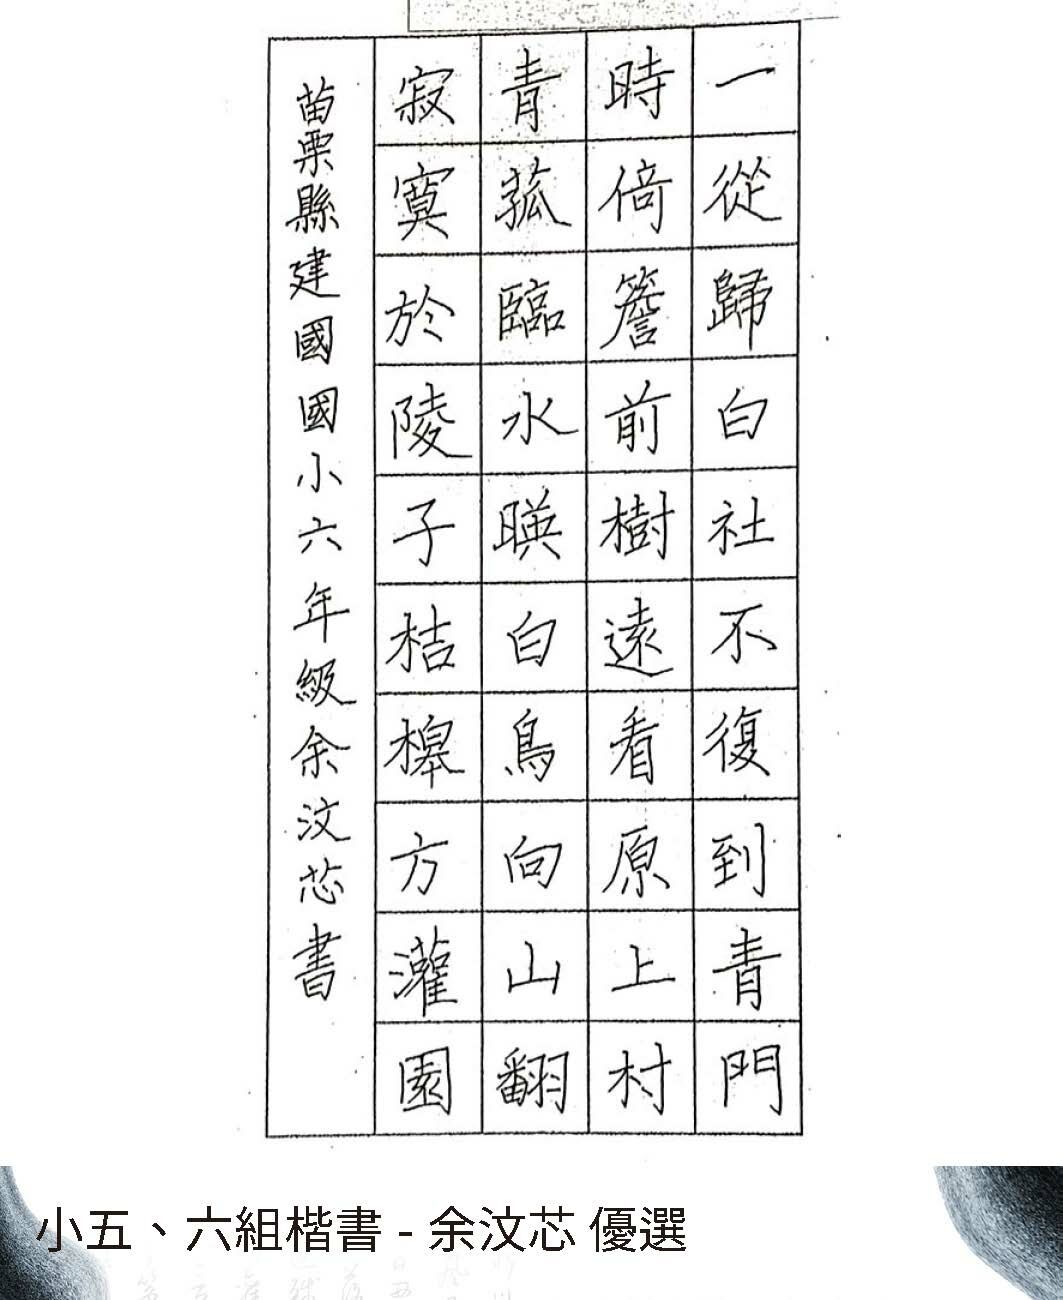 一從歸白社不復到青門
時倚簷前樹遠看原上村
青菰臨水暎白鳥向山翻
寂寞於陵子桔槔方灌園
苗栗縣建國國小六年級余汶芯書
小五、六組楷書 - 余汶芯 優選